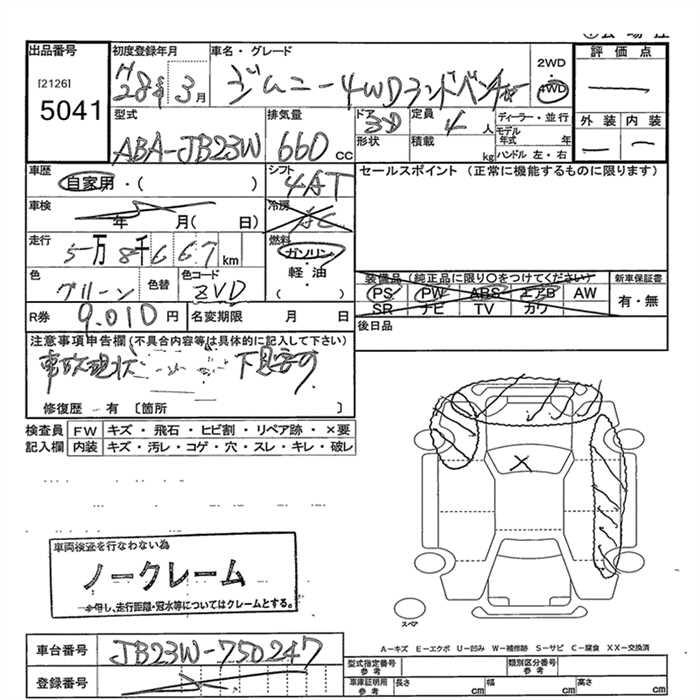 出品番号
[2126]
5041
初度登録年月
H28年3月
車名・グレード
ジムニー4WDランドベンチャー
2WD
4WD
評価点
型式
ABA-JB23W
排気量
660 cc
ドア
3D
形状
定員
4人
積載
kg
ディーラー・並行
モデル年式 年
ハンドル 左・右
外装 内装
車歴
自家用・( )
シフト
4AT
セールスポイント (正常に機能するものに限ります)
車検
年 月( 日)
冷房
AC
走行
5万8千667km
燃料
ガソリン
軽油
( )
色
グリーン
色替
色コード
ZVD
装備品(純正品に限り○をつけてください)
PS PW ABS エアB AW
SR ナビ TV カワ
新車保証書
有・無
R券
9,010円
名変期限 月 日
後日品
注意事項申告欄(不具合内容等は具体的に記入して下さい)
事故現状
修復歴 有 [箇所 ]
検査員記入欄
FW キズ・飛石・ヒビ割・リペア跡・×要
内装 キズ・汚レ・コゲ・穴・スレ・キレ・破レ
車両検査を行なわない為
ノークレーム
但し、走行距離・冠水等についてはクレームとする。
スペア
A-キズ E-エクボ U-凹み W-補修跡 S-サビ C-腐食 XX-交換済
車台番号
JB23W-750247
登録番号
型式指定番号 参考
類別区分番号 参考
車庫証明用 参考
長さ cm 幅 cm 高さ cm